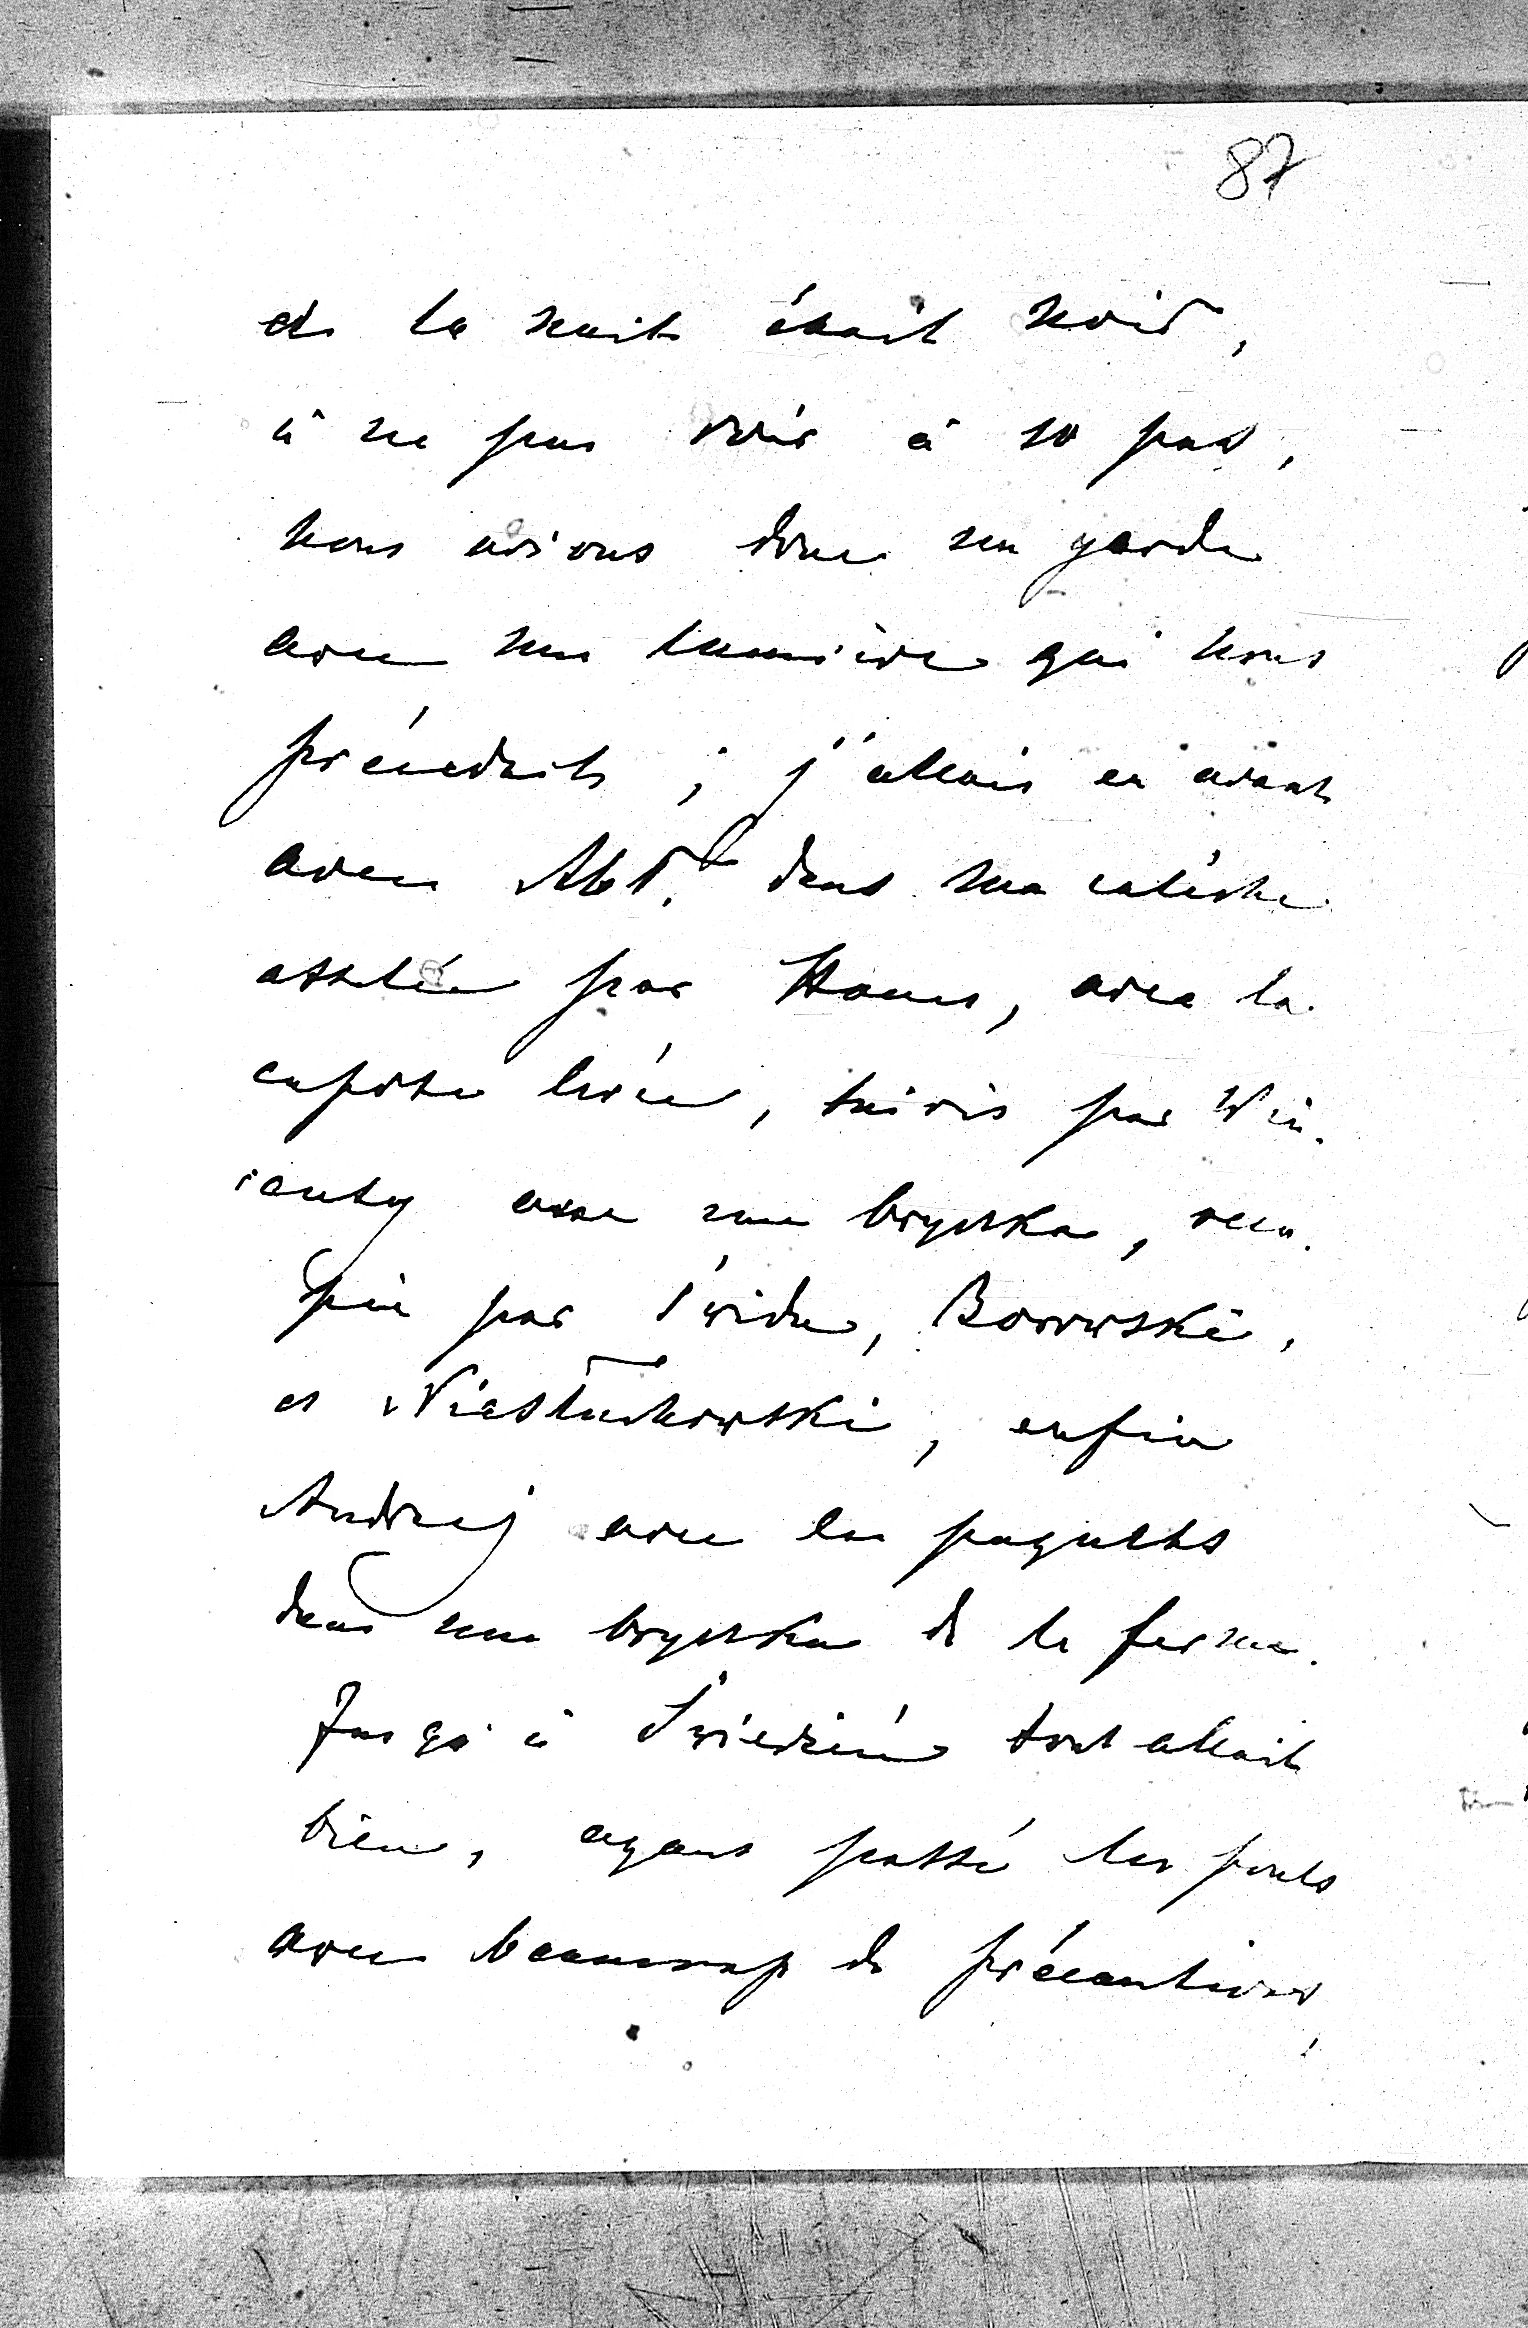 87
et la nuit était noir,
à ne pas voir à 10 pas,
nous avions donc un garde
avec une lumière qui nous
précedait ; j'allais en avant
avec Abd. dans ma calèche
attelée par Hanus, avec la
capote levée, suivis par Win-
centy avec une bryczka, occu-
pée par Świda, Borowski,
et Niesłuchowski, enfin
Andrzej avec les paquets
dans une bryczka de la ferme.
Jusqu'à Świedzień tout allait
bien, ayant passé les ponts
avec beaucoup de précautions,